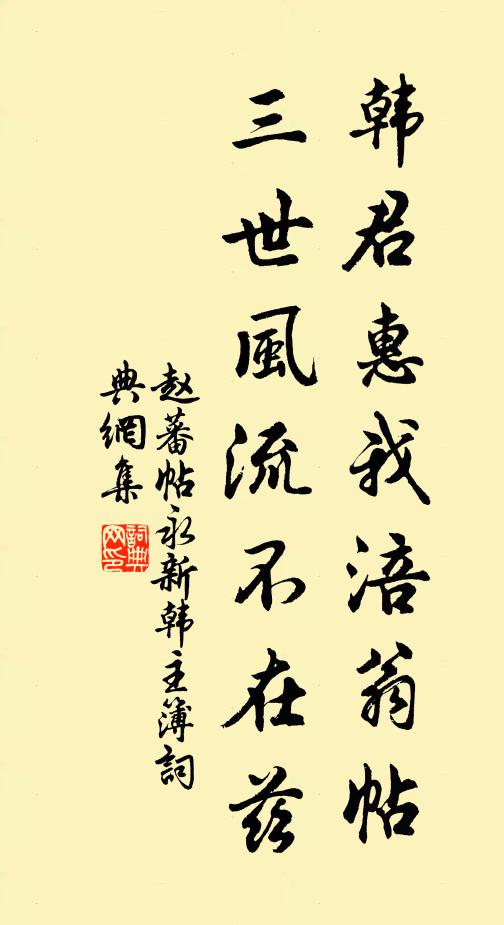 韩君惠我涪翁帖
三世風流不在兹
赵蕃帖永新韩主簿詞
典網集
詞典
网印